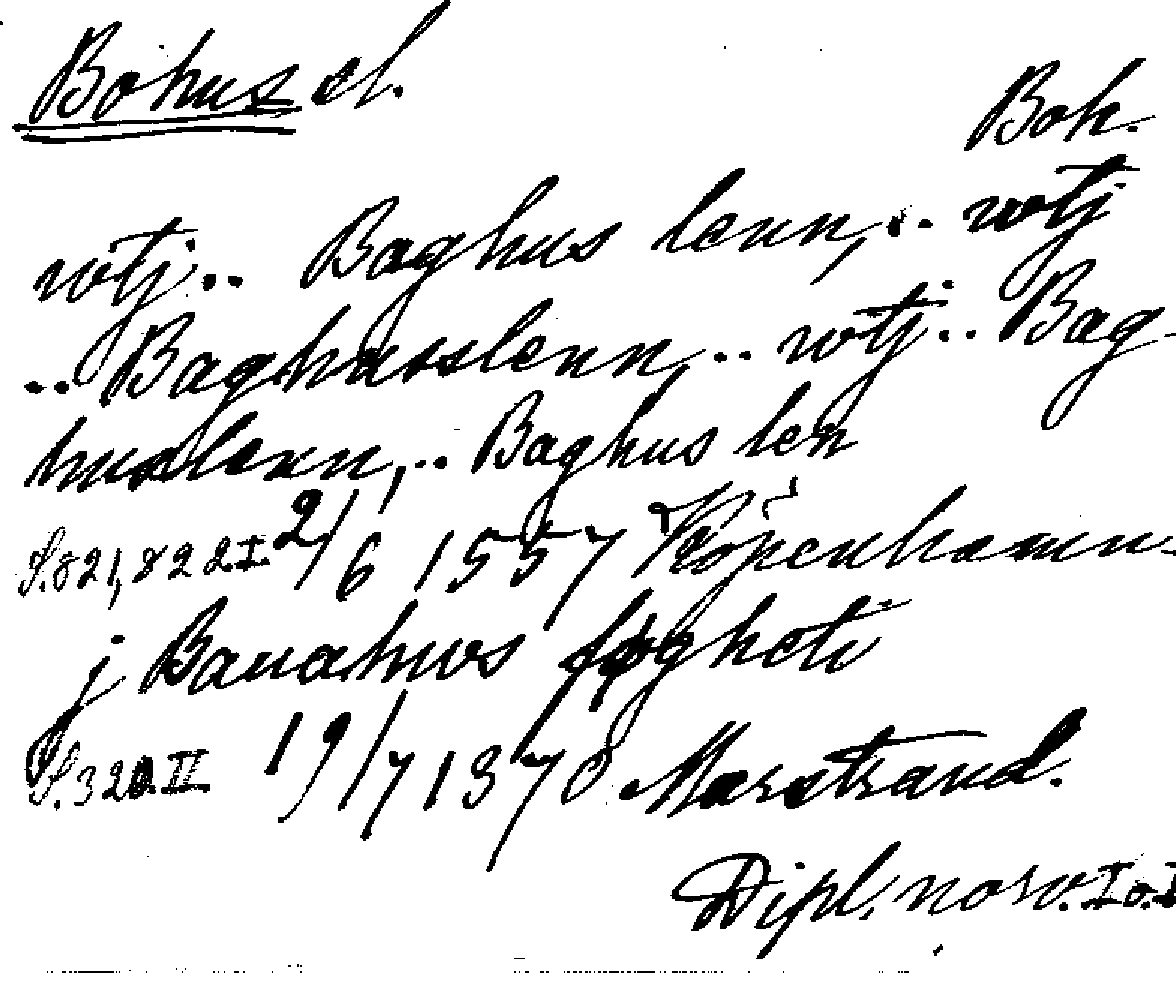 Bohus sl.
Boh.
wtj.. Baghus lenn,.. wtj
.. Baghusslenn,.. wtj.. Bag-
huslenn,.. Baghus len
S.821,822.I 2/6 1557 Köpenhamn.
j Bauahws foghoti
S.320.II 19/7 1370 Marstrand.
Dipl. norv. I o. I